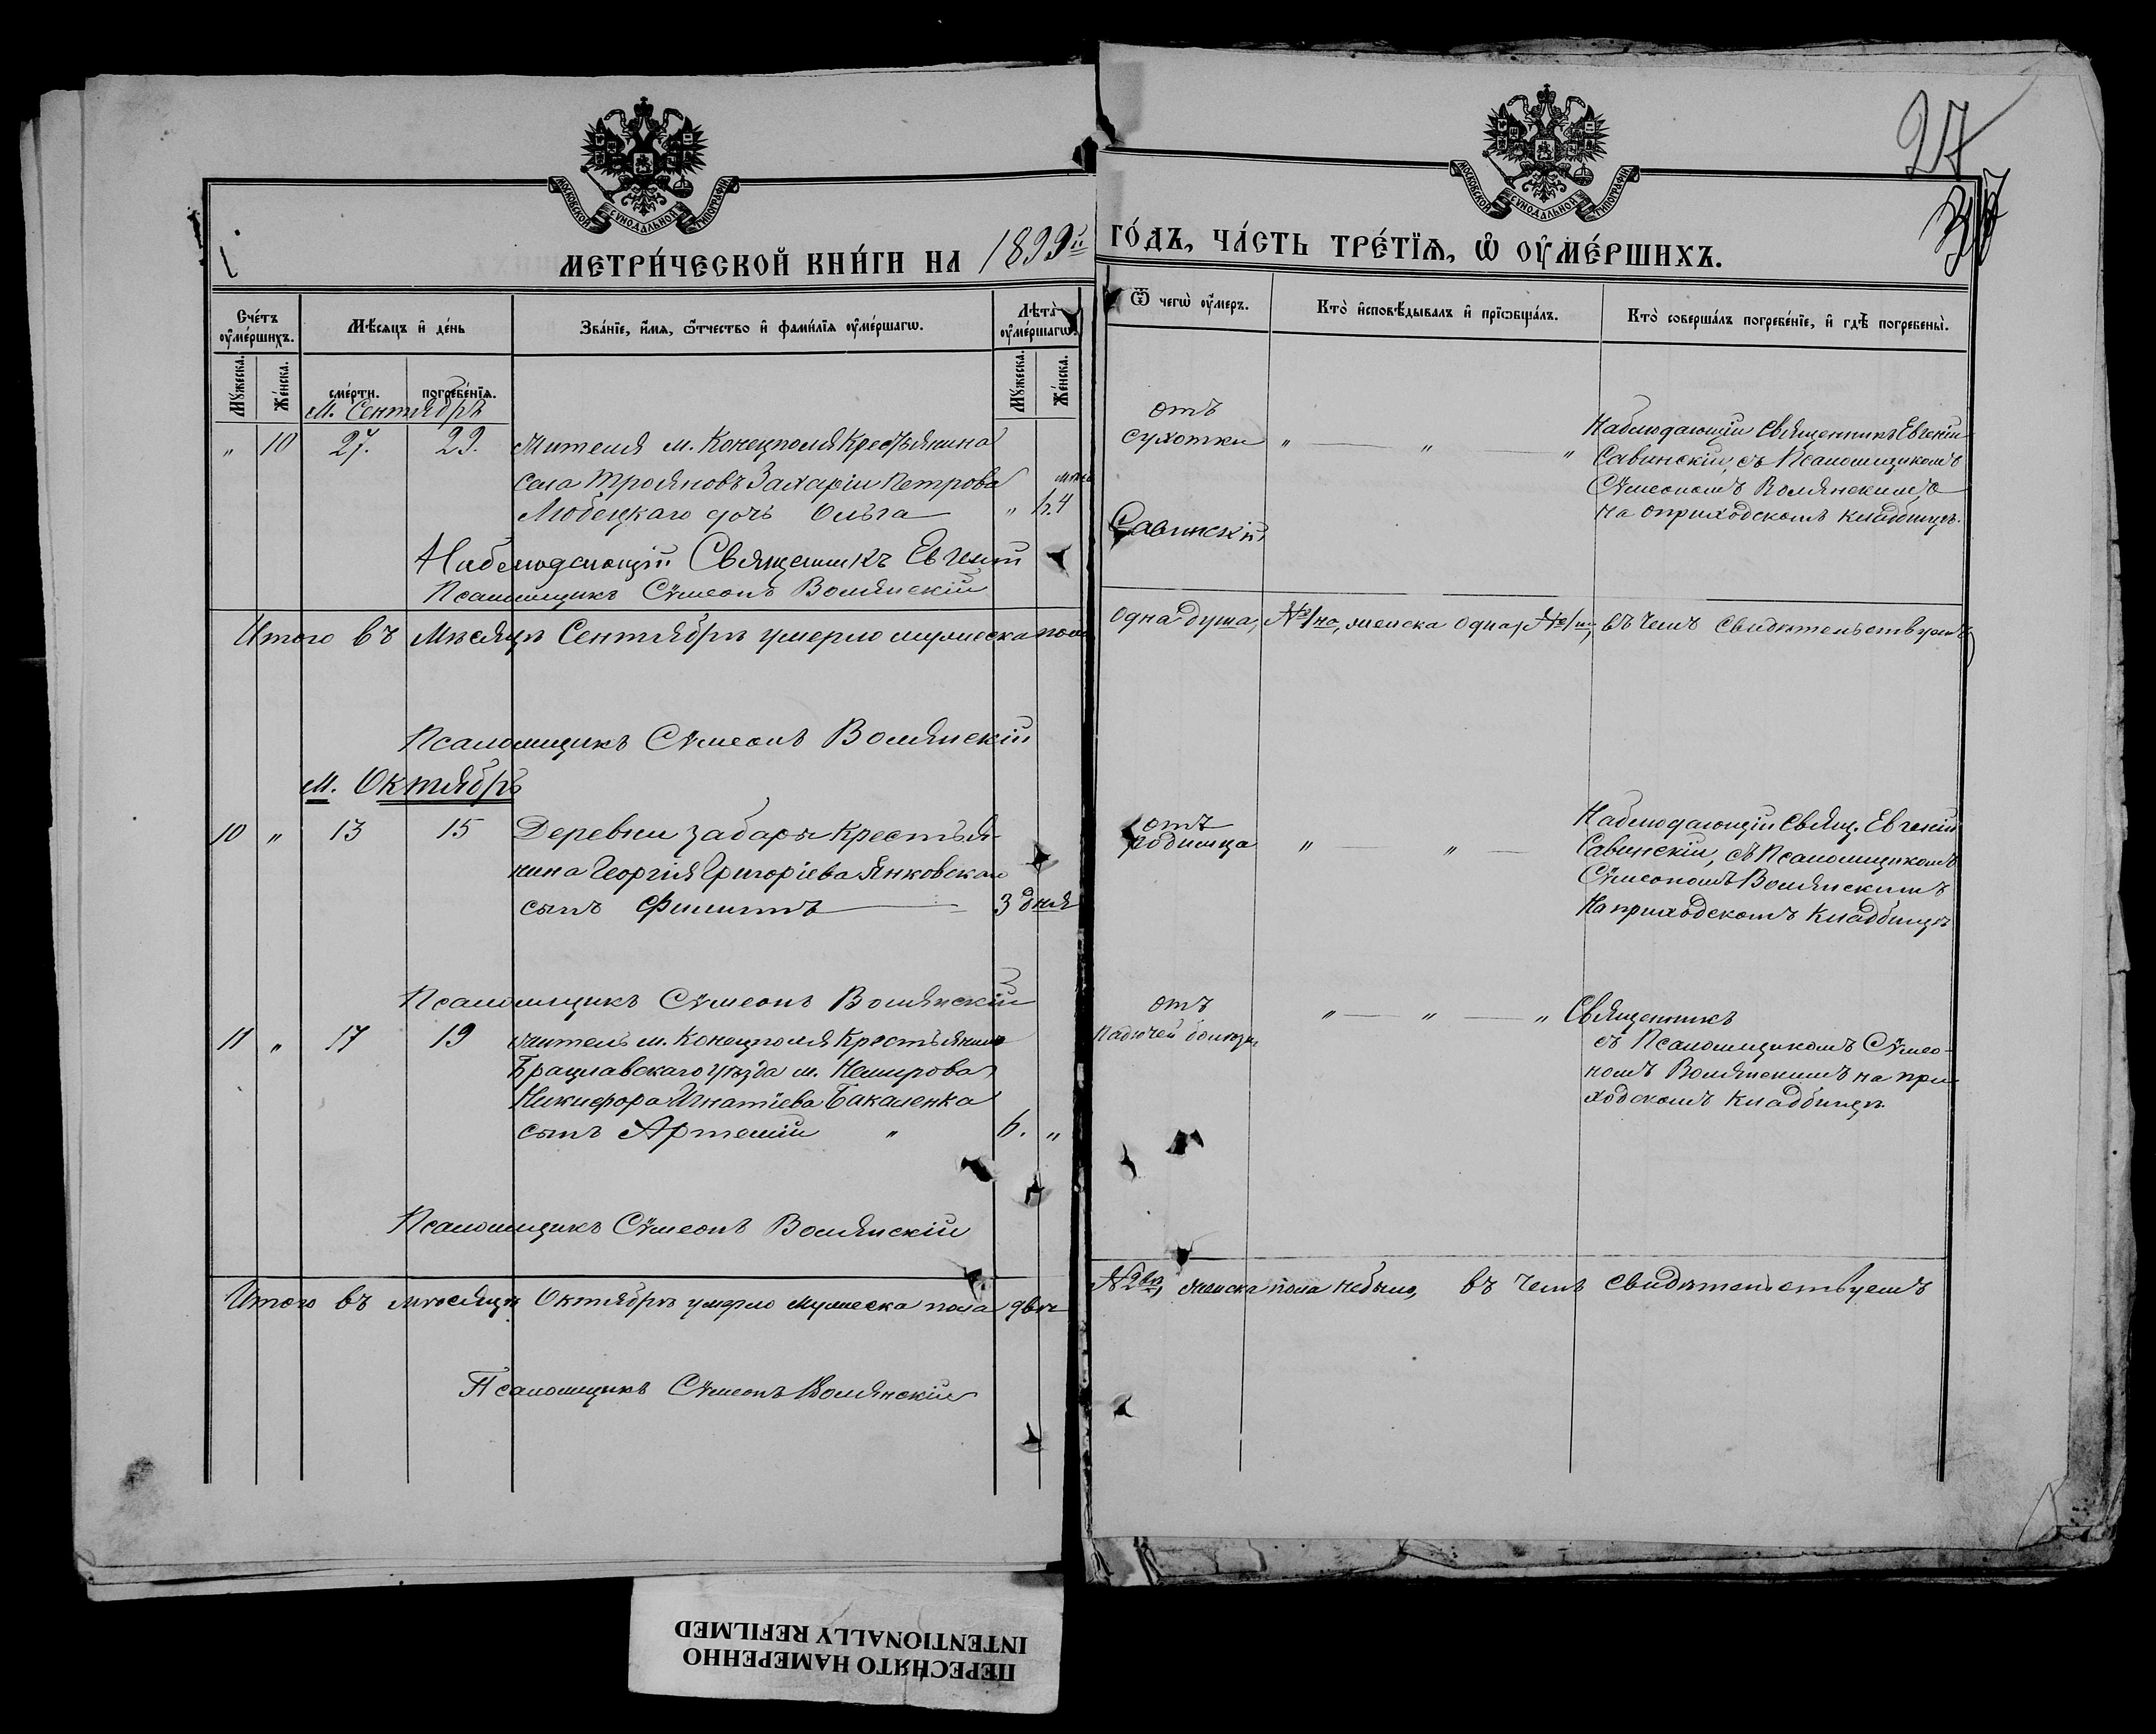 МОСКОВСКОЙ СУНОДАЛЬНОЙ ТИПОГРАФІИ
МОСКОВСКОЙ СУНОДАЛЬНОЙ ТИПОГРАФІИ
27
МЕТРИ́ЧЕСКОЙ КНИ́ГИ НА 1899й
ГО́ДЪ, ЧА́СТЬ ТРЕ́ТЇѦ, Ѡ҆ ОУ҆МЕ́РШИХЪ.
Сче́тъ оу҆ме́ршихъ.
Мѣ́сяцъ и҆ де́нь
Зва́нїе, и҆́мѧ, ѻ҆́тчество и҆ фами́лїѧ оу҆ме́ршагѡ.
Лѣта̀ оу҆ме́ршагѡ.
Ѿ чегѡ̀ оу҆́меръ.
Кто̀ и҆сповѣ́дывалъ и҆ прїѡбща́лъ.
Кто̀ соверша́лъ погребе́нїе, и҆ гдѣ̀ погребены̀.
Мꙋ́жеска.
Же́нска.
сме́рти.
погребе́нїѧ.
Мꙋ́жеска.
Же́нска.
М. Сентябрь
" 10 27. 29. Жителя м. Конецполя Крестьянина
села Трояновъ Захаріи Петрова
Любецкаго дочь Ольга "
отъ
сухотки " " "
Наблюдающій Священникъ Евгеній
Савинскій, съ Псаломщикомъ
Сѵмеономъ Волянскимъ
на приходскомъ кладбищѣ.
Наблюдающій Священникъ Евгеній
Савинскій
Псаломщикъ Сѵмеонъ Волянскій
Итого въ Мѣсяцѣ Сентябрѣ умерло мужеска пола
одна душа, №1но, женска одна, №1на, въ чемъ свидѣтельствуемъ
Псаломщикъ Сѵмеонъ Волянскій
М. Октябрь
10 " 13 15 Деревни Забары Крестья-
нина Георгія Григоріева Янковскаго
сынъ Филиппъ 3 дня
отъ
родимца " "
Наблюдающій Свящ. Евгеній
Савинскій, съ Псаломщикомъ
Сѵмеономъ Волянскимъ
На приходскомъ Кладбищѣ
Псаломщикъ Сѵмеонъ Волянскій
11 " 17 19 житель м. Конецполя Крестьянина
Брацлавскаго уѣзда м. Немирова
Никифора Игнатіева Бакаленка
сынъ Артемій " 6. "
отъ
падючей болѣзни " " "
Священникъ
съ Псаломщикомъ Сѵмео-
номъ Волянскимъ на при-
ходскомъ Кладбищѣ.
Псаломщикъ Сѵмеонъ Волянскій
Итого въ мѣсяцѣ Октябрѣ умерло мужеска пола двѣ
№2вѣ, женска пола небыло, въ чемъ свидѣтельствуемъ
Псаломщикъ Сѵмеонъ Волянскій
ПЕРЕСНЯТО НАМЕРЕННО
INTENTIONALLY REFILMED